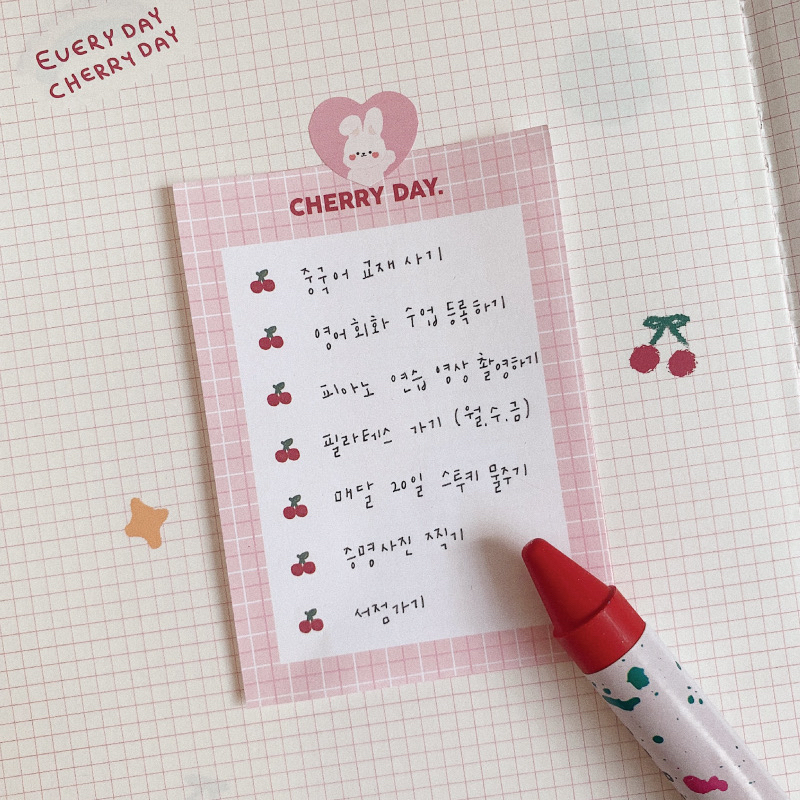 EVERY DAY
CHERRY DAY
CHERRY DAY.
중국어 교재 사기
영어회화 수업 등록하기
피아노 연습 영상 촬영하기
필라테스 가기 (월.수.금)
매달 20일 스투키 물주기
증명사진 찍기
서점가기